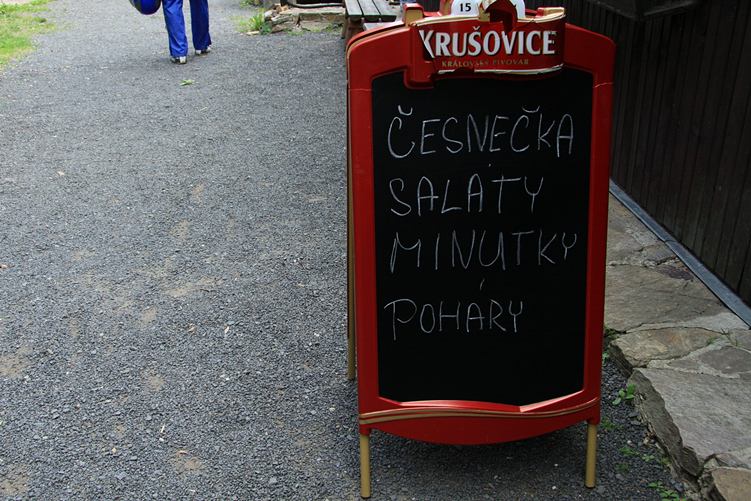 15
KRUŠOVICE
KRÁLOVSKÝ PIVOVAR
ČESNEČKA
SALÁTY
MINUTKY
POHÁRY